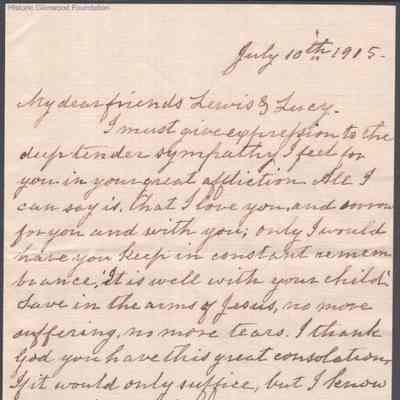 Historic Glenwood Foundation
July 10th 1915-
My dear friends Lewis & Lucy-
I must give expression to the
deep tender sympathy I feel for
you in your great affliction All I
can say is, that I love you, and sorrow
for you and with you; only I would
have you keep in constant remem
brance, "It is well with your child"
Save in the arms of Jesus, no more
suffering, no more tears. I thank
God you have this great consolation,
If it would only suffice, but I know